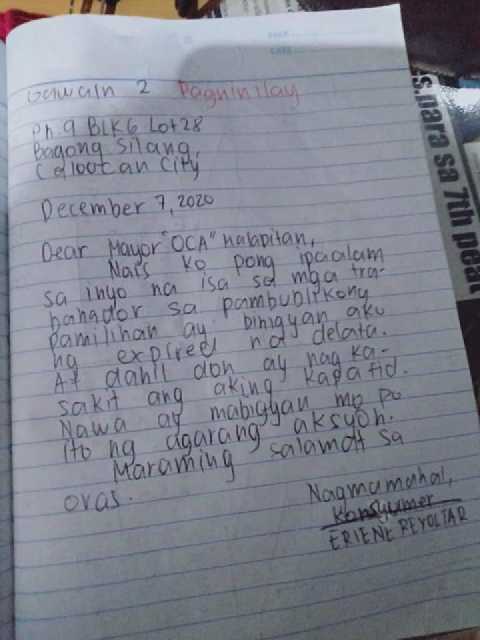 Gawain 2 Pagninilay
Ph.9 BLK6 Lot28
Bagong Silang,
Caloocan City
December 7, 2020
Dear Mayor "OCA" malapitan,
Nais ko pong ipaalam
sa inyo na isa sa mga tra-
bahador sa pambublikong
pamilihan ay binigyan ako
ng expired na delata.
At dahil don ay nag ka-
sakit ang aking kapatid.
Nawa ay mabigyan mo po
ito ng agarang aksyon.
Maraming salamat sa
oras.
Nagmamahal,
Konsyumer
ERIENE REYOLTAR
s.para sa 7th